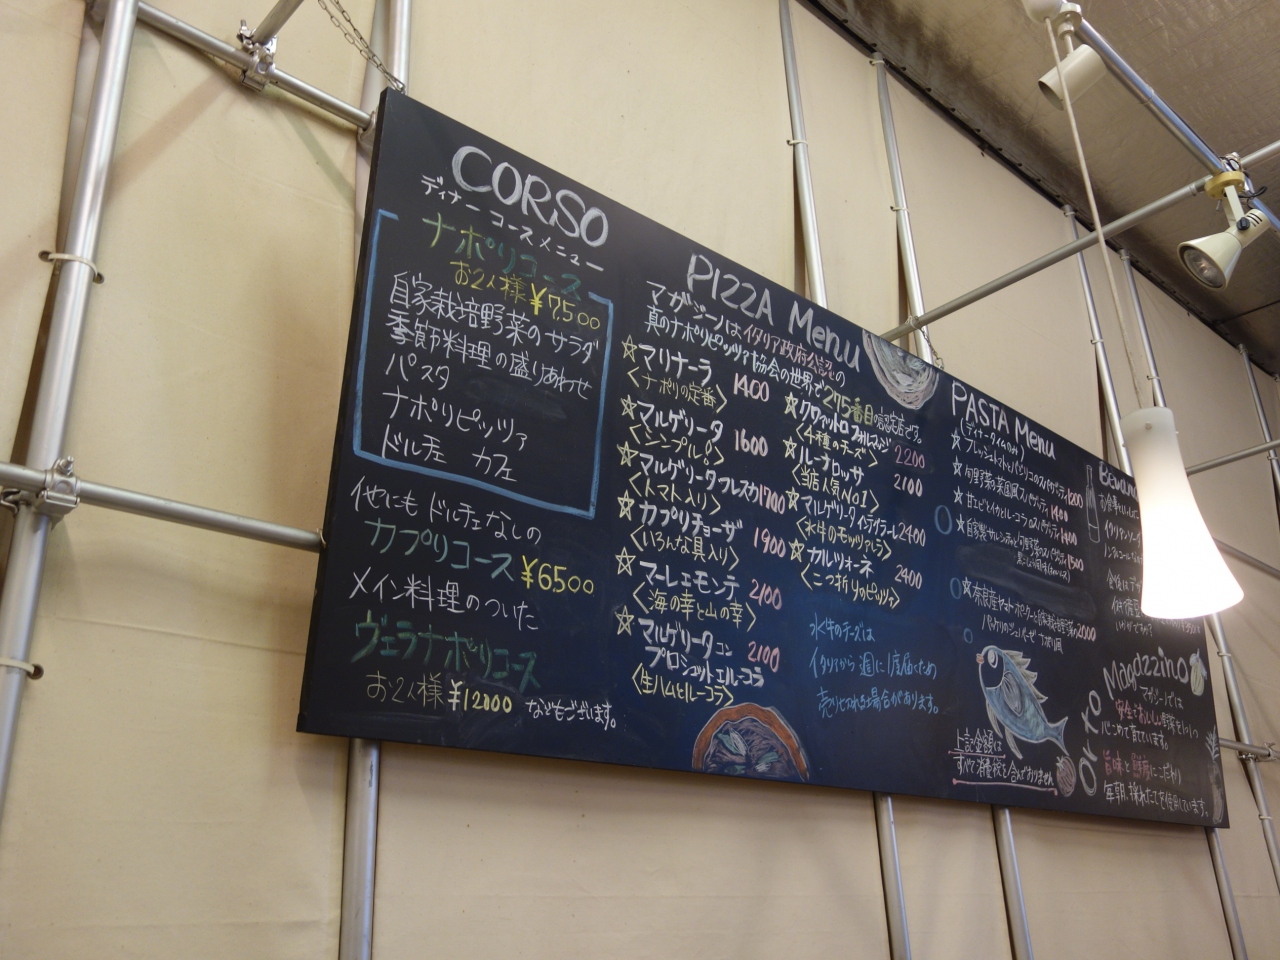 CORSO
ディナーコースメニュー
ナポリコース
お2人様¥7500
自家栽培野菜のサラダ
季節料理の盛りあわせ
パスタ
ナポリピッツァ
ドルチェ カフェ
他にもドルチェなしの
カプリコース¥6500
メイン料理のついた
ヴェラナポリコース
お2人様¥12000 などもございます。
PIZZA Menu
マガジーノはイタリア政府公認の
真のナポリピッツァ協会の世界で275番目の認定店です。
☆マリナーラ 1400
〈ナポリの定番〉
☆マルゲリータ 1600
〈シンプル〉
☆マルゲリータフレスカ1700
〈トマト入り〉
☆カプリチョーザ 1900
〈いろんな具入り〉
☆マーレエモンテ 2100
〈海の幸と山の幸〉
☆マルゲリータコン
プロシュットエルーコラ 2100
〈生ハムとルーコラ〉
☆クワァットロフォルマッジ 2200
〈4種のチーズ〉
☆ルーナロッサ 2100
〈当店人気No1〉
☆マルゲリータインテグラーレ2400
〈水牛のモッツァレラ〉
☆カルツォーネ 2400
〈二つ折りのピッツァ〉
水牛のチーズは
イタリアから週に1度届くため
売り切れる場合があります。
PASTA Menu
(ディナータイムのみ)
☆フレッシュトマトとバジリコのスパゲティ1200
☆旬野菜の菜園風スパゲティ1400
☆甘エビとイカとルーコラのスパゲティ1400
☆自家製サルシッチャと旬野菜のスパゲティ1500
☆奈良産ヤマトポークと自家栽培野菜の2000
ナポリ風
上記金額は
すべて消費税を含んでおりません
Bevan
お食事といっしょ
イタリアンソー
Orto
Magazzino
マガジーノでは
安全でおいしい野菜をじっくり
心こめて育てています。
旨味と鮮度にこだわり
毎朝、採れたてを使用しています。